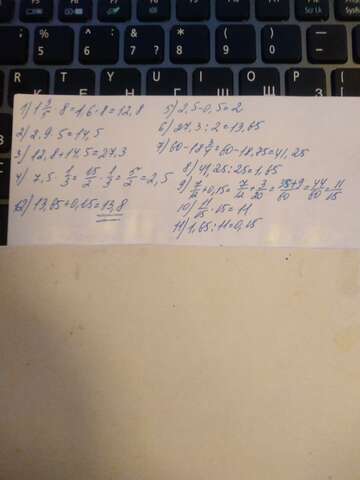 1) 1 3/5 · 8 = 1,6 · 8 = 12,8
2) 2,9 · 5 = 14,5
3) 12,8 + 14,5 = 27,3
4) 7,5 · 1/3 = 15/2 · 1/3 = 5/2 = 2,5
12) 13,65 + 0,15 = 13,8
5) 2,5 - 0,5 = 2
6) 27,3 : 2 = 13,65
7) 60 - 18 3/4 = 60 - 18,75 = 41,25
8) 41,25 : 25 = 1,65
9) 7/12 + 0,15 = 7/12 + 3/20 = 35+9/60 = 44/60 = 11/15
10) 11/15 · 15 = 11
11) 1,65 : 11 = 0,15